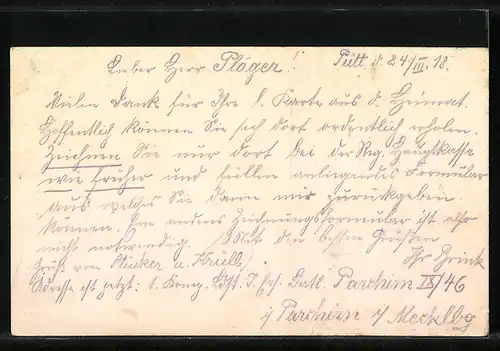 Lieber Herr Plöger! Pütt, d. 24/III.18.
Vielen Dank für Ihre l. Karte aus d. Heimat.
Hoffentlich können Sie sich dort ordentlich erholen.
Zeichnen Sie nur dort bei der Reg. Hauptkasse
wie früher und füllen anliegendes Formular
aus welches Sie dann mir zurückgeben
können. Ein anderes Zeichnungsformular ist also
nicht notwendig. Mit den besten Grüßen
Gruß von Plücker u. Krull Ihr
Adresse ist jetzt: 1. Komp. Ldst. I. Ers. Batl. Parchim IX/46
i/ Parchim i/ Mecklbg